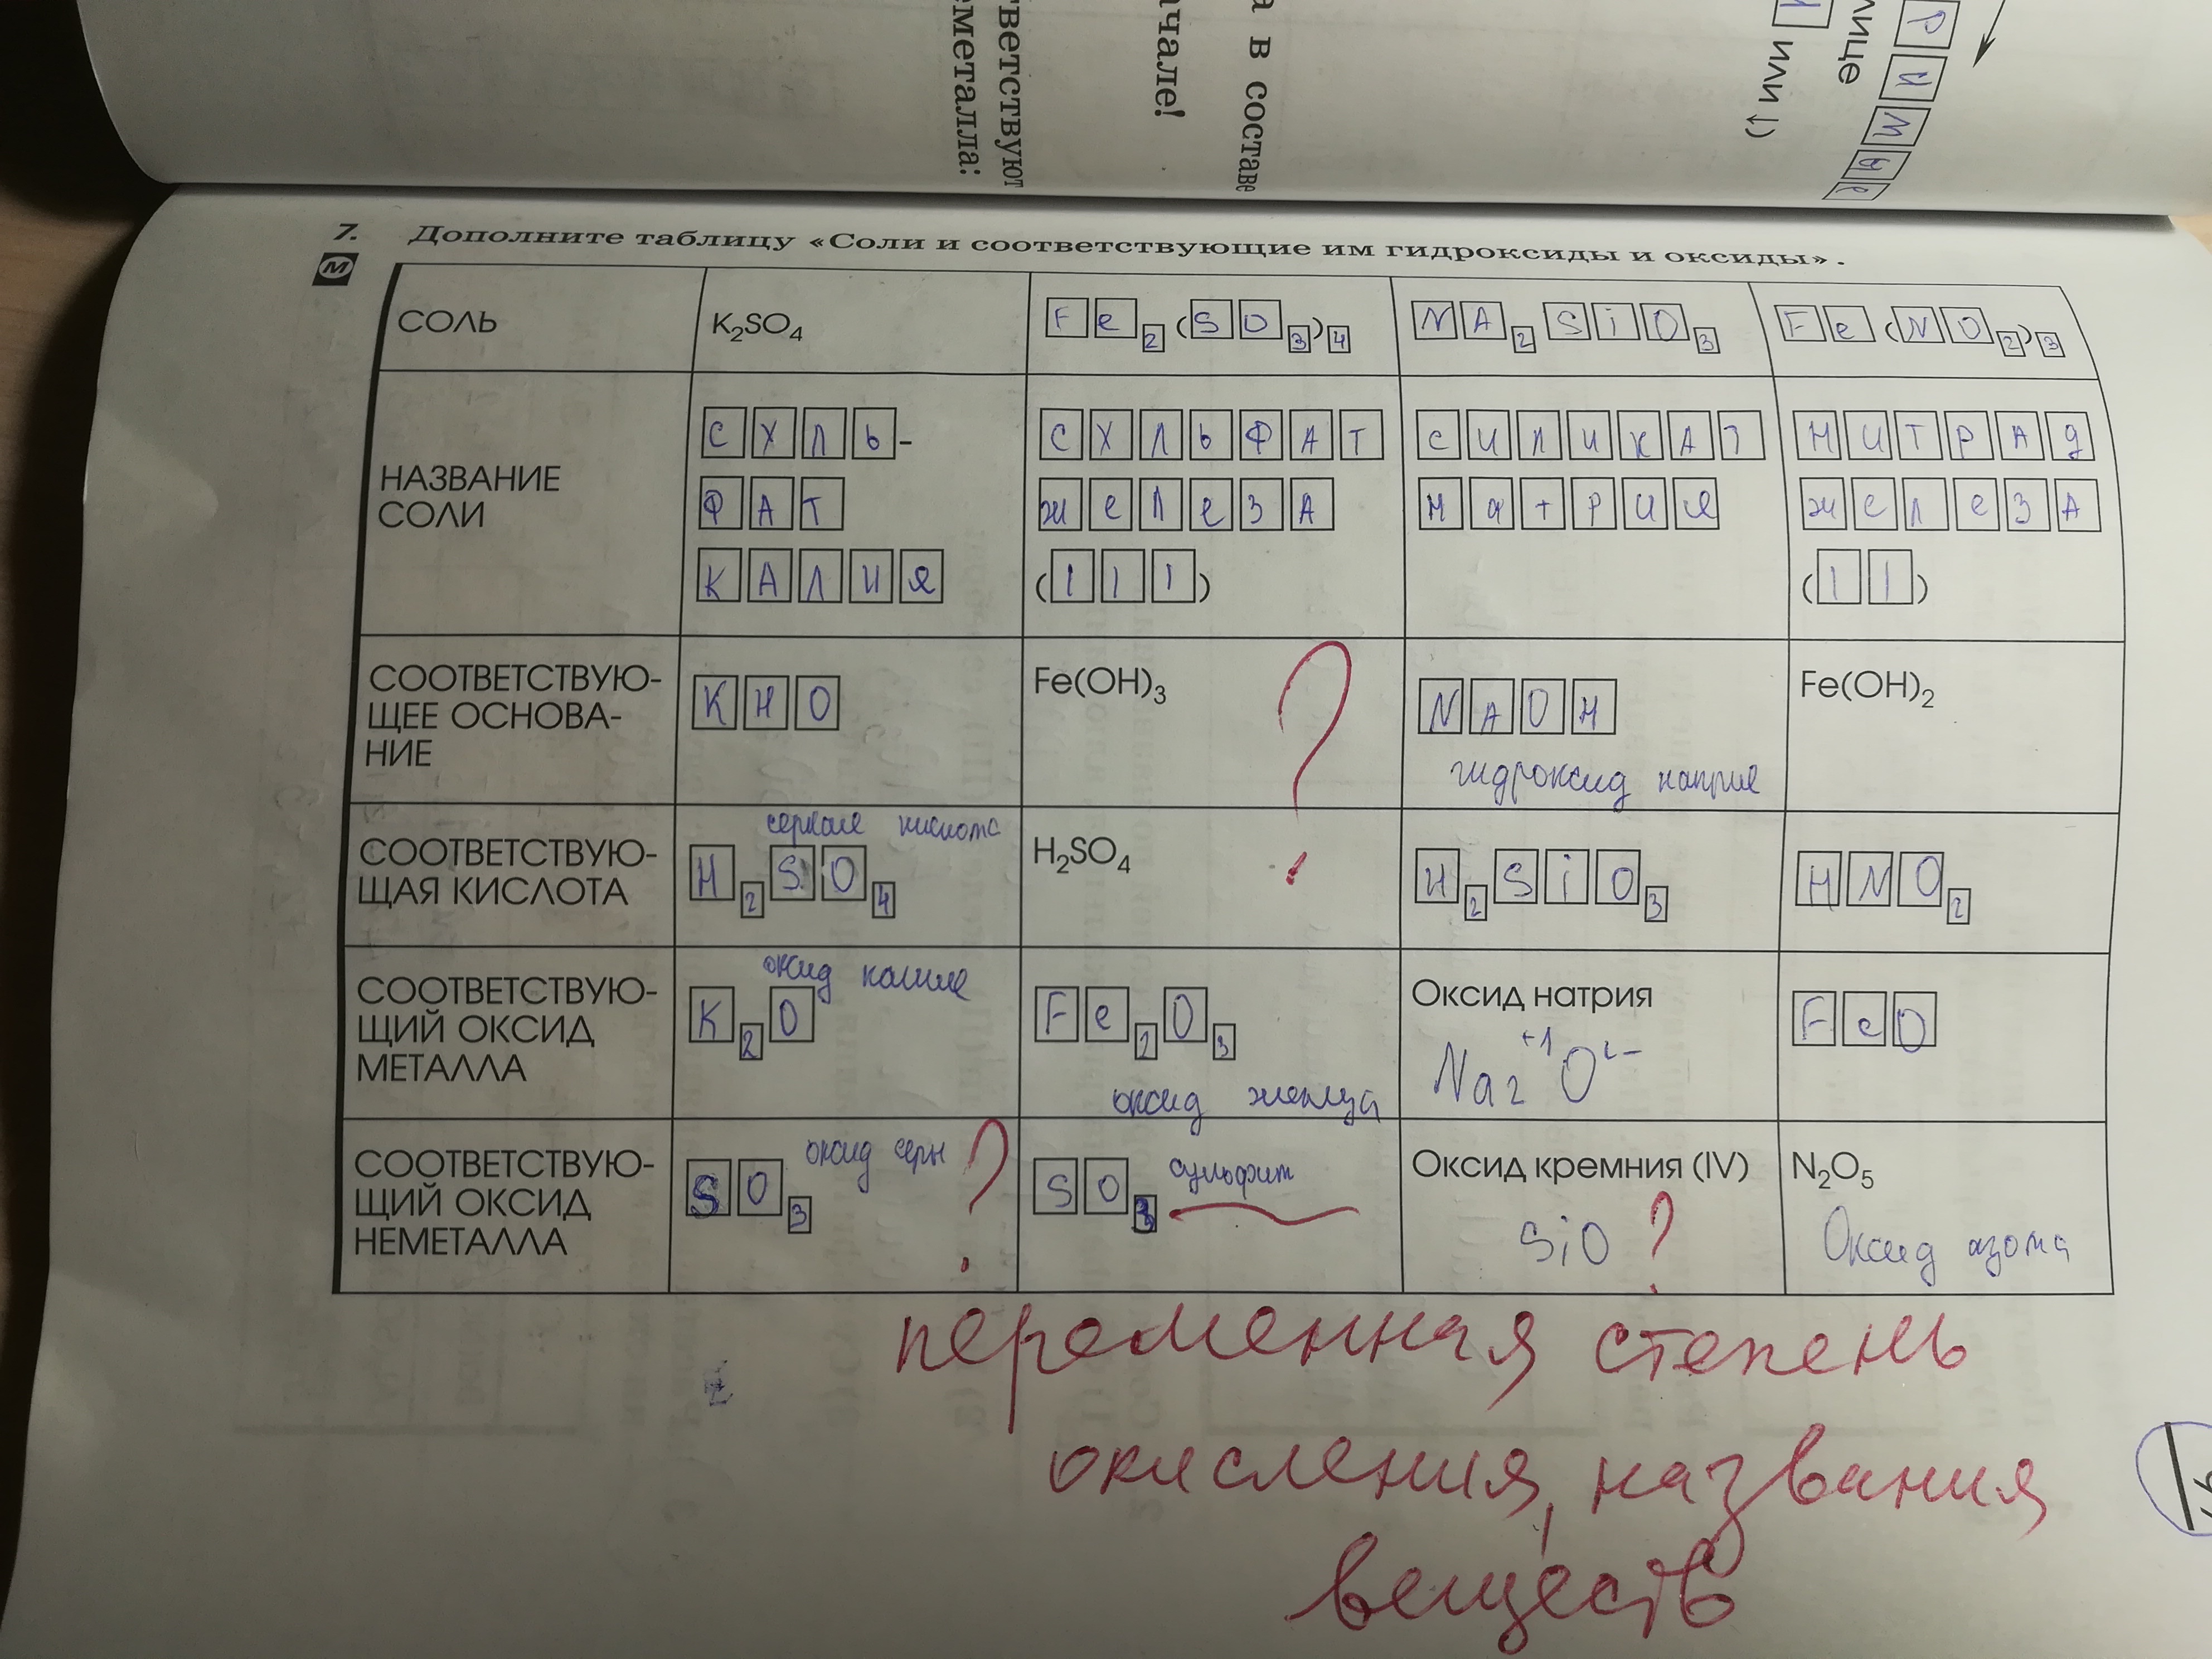 тветствуют
еметалла:
чале!
а в составе
или ↓)
лице
Р И М Ы Е
7. Дополните таблицу «Соли и соответствующие им гидроксиды и оксиды».
М
СОЛЬ K₂SO₄ Fe₂(SO₃)₄ NA₂SiO₃ Fe(NO₂)₃
НАЗВАНИЕ СОЛИ
СХЛЬ-
ФАТ
КАЛИЯ
СХЛЬФАТ
железА
(III)
силикАТ
натрия
НИТРАд
железА
(II)
СООТВЕТСТВУЮ-
ЩЕЕ ОСНОВА-
НИЕ
KHO
Fe(OH)₃ ?
NAOH
гидроксид натрия
Fe(OH)₂
СООТВЕТСТВУЮ-
ЩАЯ КИСЛОТА
серная кислота
H₂SO₄
H₂SO₄
H₂SiO₃
HNO₂
СООТВЕТСТВУЮ-
ЩИЙ ОКСИД
МЕТАЛЛА
оксид калия
K₂O
Fe₂O₃
оксид железа
Оксид натрия
Na₂⁺¹O²⁻
FeO
СООТВЕТСТВУЮ-
ЩИЙ ОКСИД
НЕМЕТАЛЛА
SO₃ оксид серы ?
SO₃ сульфит
Оксид кремния (IV)
SiO ?
N₂O₅
Оксид азота
переменная степень
окисления, названия
веществ